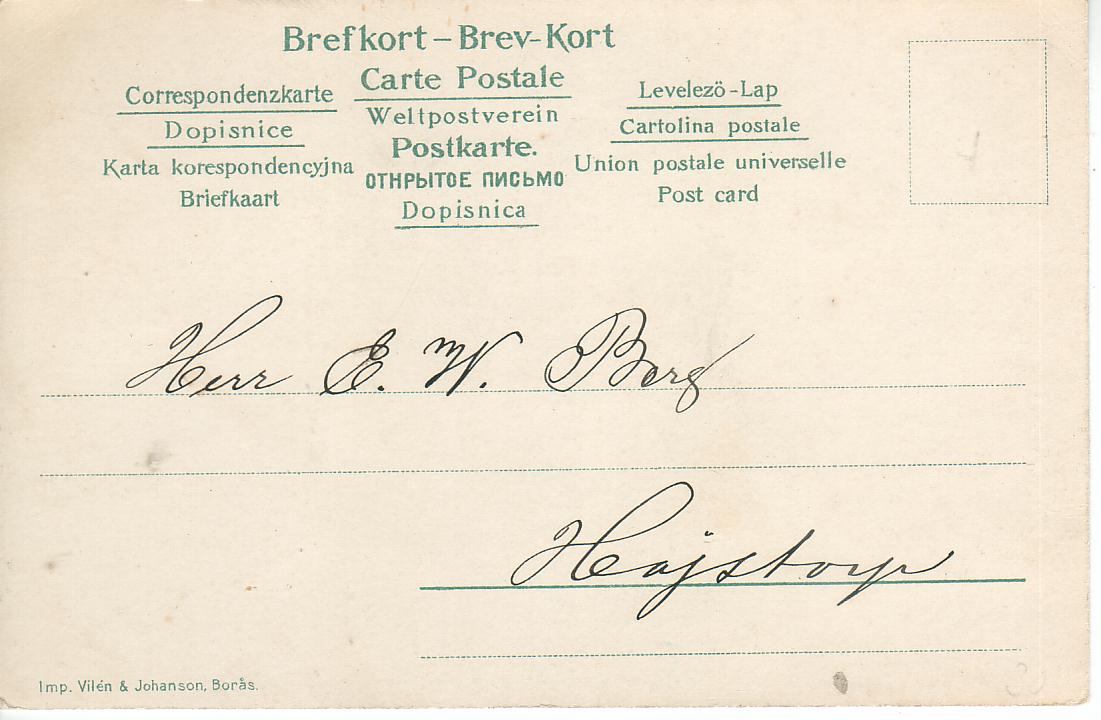 Brefkort – Brev-Kort
Correspondenzkarte
Dopisnice
Karta korespondencyjna
Briefkaart
Carte Postale
Weltpostverein
Postkarte.
ОТНРЫТОЕ ПИСЬМО
Dopisnica
Levelezö-Lap
Cartolina postale
Union postale universelle
Post card
Herr E. W. Berg
Hajstorp
Imp. Vilén & Johanson, Borås.